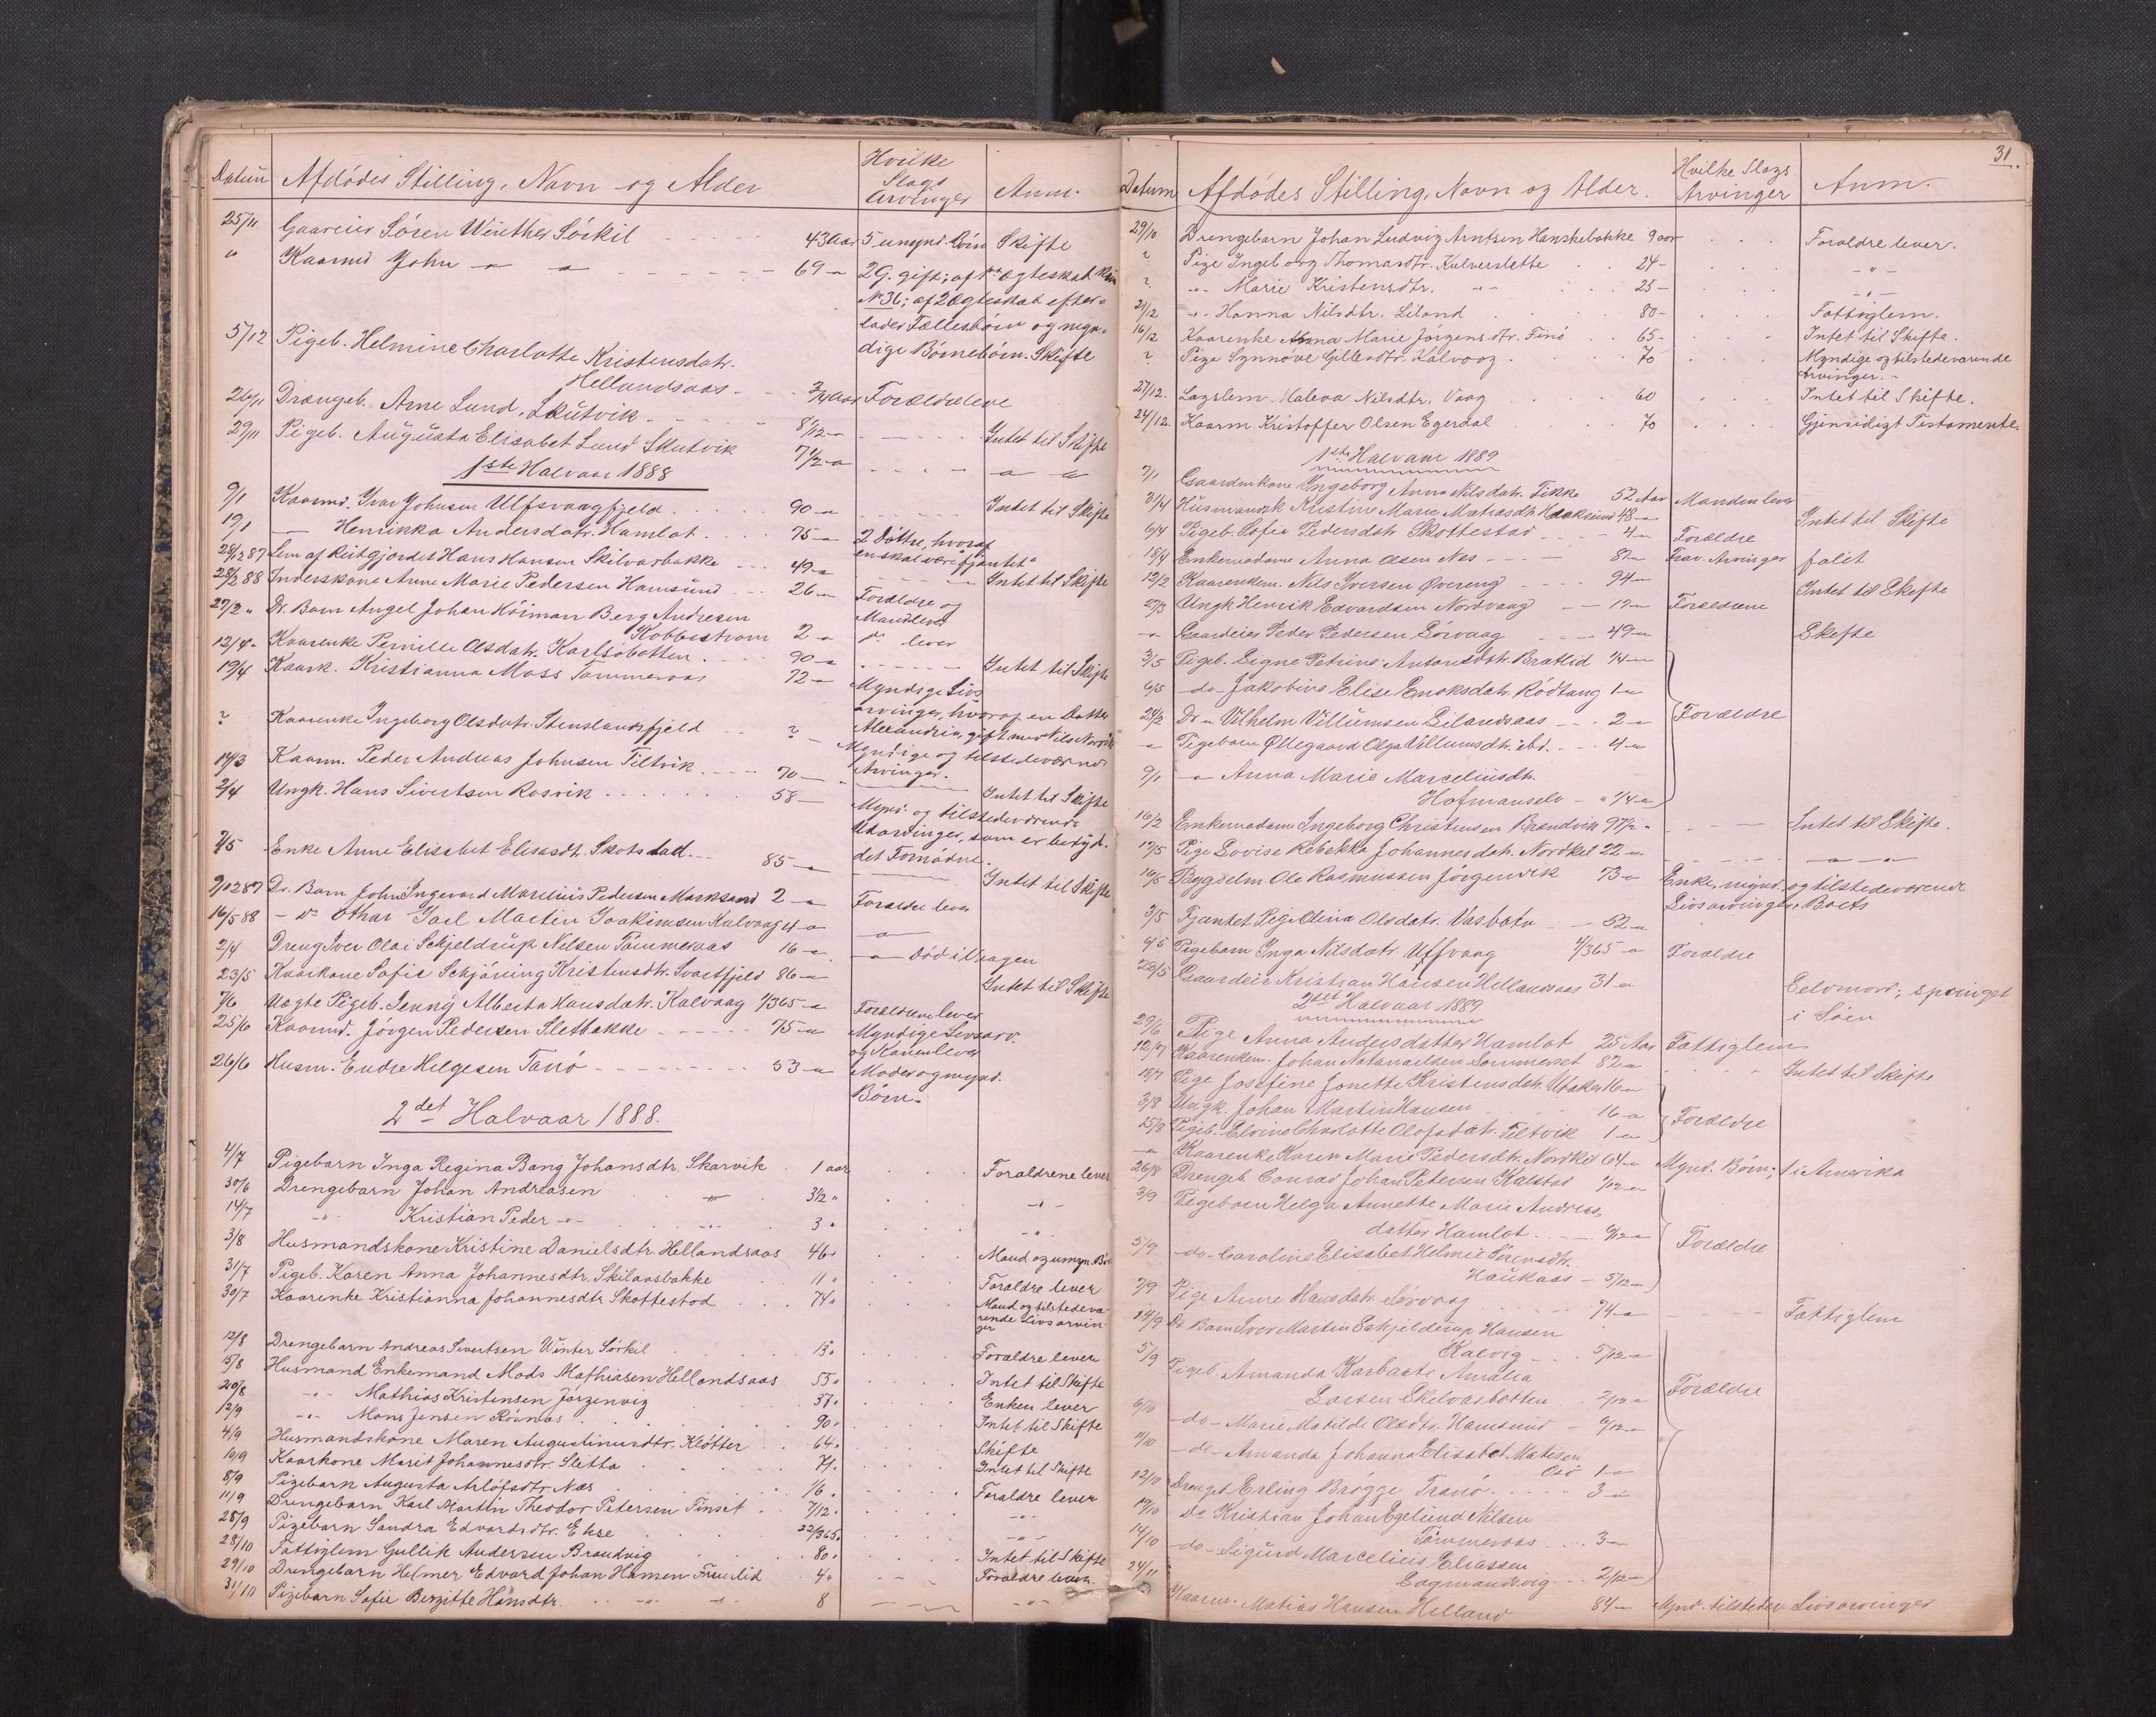 Datum Afdødes Stilling, Navn og Alder Hvilke Slags Arvinger Anm.
25/11 Gaareier Sören Winther Sörkil 43 Aar 5 umynd. Börn Skifte
" Kaarmd John 69 2 G. gift; af 1ste Ægteskab
No 36; af 2 Ægteskab efter-
lader Fællesbörn og myn-
dige Börnebörn. Skifte
5/12 Pigeb. Helmine Charlotte Kristensdatr.
Hellandsaas 3/4 Aar Forældre leve
26/11 Drængeb. Arne Lund, Skutvik 8/12
29/11 Pigeb. Augusta Elisabet Lund Skutvik 7 1/2 Intet til Skifte
1ste Halvaar 1888
9/1 Kaarmd. Ivar Johnsen Ulfsvaagfjeld 90 Intet til Skifte
19/1 Henrikka Andersdatr. Hamlot 75 2 Döttre, hvoraf
en skal være "fjantet"
28/2 87 Lem af Reitgjærdet Hans Hansen Skilvasbakke 49 Intet til Skifte
28/2 88 Inderskone Anne Marie Pedersen Hamsund 26 Forældre og
Mand lever
27/2 " Dr. Barn Angel Johan Höiman Berg Andresen
Kobbestrøm 2 do lever
12/4 Kaarenke Pernille Olsdatr. Karlsöbotten 90 Intet til Skifte
19/4 Kaark. Kristianna Moss Tømmeraas 72 Myndige Livs
arvinger, hvoraf en Datter
Alexandria, gift med Nils
? Kaarenke Ingeborg Olsdatr. Stenslandsfjeld ? Myndige og tilstedeværend
Arvinger.
14/3 Kaarm. Peder Andreas Johnsen Tiltvik 70 Intet til Skifte
2/4 Ungk. Hans Sivertsen Rosvik 58 Mynd. og tilstedeværende
Udarvinger, som er betyd-
det Fornødne.
7/5 Enke Anne Elisabet Elisasdt. Skotstad 85 Intet til Skifte
9/12 87 Dr. Barn John Ingevard Marelius Pedersen Marksund 2 Forældre lever
16/5 88 do Othar Jarl Martin Joakimsen Kalvaag 4
2/4 Dreng Iver Olai Schjeldrup Nilsen Tömmeraas 16 Död i Vaagen
23/5 Kaarkone Sofie Schjöning Kristensdtr. Svartfjeld 86 Intet til Skifte
7/6 Uægte Pigeb. Jenny Alberta Hansdatr. Kalvaag 1/365 Forældrene lever
25/6 Kaarmd. Jörgen Pedersen Sletbakke 75 Myndige Livsarv.
og Konen lever
26/6 Husm. Endre Helgesen Tanö 53 Moder og mynd.
Börn.
2det Halvaar 1888.
4/7 Pigebarn Inga Regina Bang Johansdtr. Skarvik 1 aar Forældrene lever
30/6 Drengebarn Johan Andreasen 3 1/2
14/7 Kristian Peder 3
3/8 Husmandskone Kristine Danielsdtr. Hellandsaas 46 Mand og umyn. Bö
31/7 Pigeb. Karen Anna Johannesdtr. Skilaasbakke 11 Forældre lever
30/7 Kaarenke Kristianna Johannesdtr. Skottestad 74 Mand og tilstedevæ-
rende Livsarvin-
ger
12/8 Drengebarn Andreas Sivertsen Winter Sörkil 13 Forældre lever
15/8 Husmand Enkemand Mads Mathiasen Hellandsaas 55 Intet til Skifte
20/8 Mathias Kristensen Jörgenvig 37 Enken lever
12/9 Mons Jensen Rösnas 90 Intet til Skifte
4/9 Husmandskone Maren Augustinusdtr. Klötter 64 Skifte
10/9 Kaarkone Marit Johannesdtr. Sletta 71 Intet til Skifte
8/9 Pigebarn Augusta Arlöfsdtr. Næs 1/6 Forældre lever
11/9 Drengebarn Karl Martin Theodor Petersen Finset 7/12
28/9 Pigebarn Sandra Edvardsdtr. Ekse 22/365
28/10 Fattiglem Gullik Andersen Brandvig 80 Intet til Skifte
29/10 Drengebarn Helmer Edvard Johan Hansen Fruelid 4 Forældre lever.
31/10 Pigebarn Sofie Bergitte Hansdtr. 8
31.
Datum Afdødes Stilling, Navn og Alder. Hvilke Slags Arvinger Anm.
29/10 Drengebarn Johan Ludvig Arntsen Hanskebakke 9 aar Forældre lever.
? Pige Ingeborg Thomasdtr. Kulverslette 24
? Marie Kristensdtr. 25
21/12 Hanna Nilsdtr. Liland 80 Fattiglem.
16/12 Kaarenke Anna Marie Jörgensdtr. Finö 65 Intet til Skifte.
? Pige Synnove Gullesdtr. Kalvaag 70 Myndige og tilstedeværende
Arvinger.
27/12. Lagslem Maleva Nilsdtr. Vaag 60 Intet til Skifte.
24/12. Kaarm. Kristoffer Olsen Egerdal 70 Gjensidigt Testamente.
1ste Halvaar 1889
7/1 Gaardmkone Ingeborg Anna Nilsdatr. Fikke 52 Aar Manden lever
31/4 Husmandsk Kristine Marie Matiasdtr. 48 Intet til Skifte
6/4 Pigeb. Sofie Pedersdtr. Skottestad 4 Forældre
18/4 Enkemadame Anna Olsen Næs 81 Frav. Arvinger falit
12/2 Kaarenkem. Nils Iversen Øvereng 94 Intet til Skifte
27/3 Ungk Henrik Edvardsen Nordvaag 19 Forældrene
Gaardeier Peder Pedersen Sörvaag 49 Skifte
3/5 Pigeb. Signe Petrine Antonsdtr. Bratlid 1/4
6/5 do Jakobine Elise Enoksdatr. Rödtang 1
24/2 Dr Vilhelm Villumsen Eilandsaas 2 Forældre
Pigebarn Øllegaard Olga Villumsdtr. ibd. 4
9/1 Anna Marie Marceliusdtr.
Hofmanselv 1/4
16/2 Enkemadam Ingeborg Christensen Brandvik 97 1/2 Intet til Skifte.
17/5 Pige Lovise Rebekka Johannesdatr. Nordkil 22
16/5 Bygselm Ole Rasmussen Jörgenvik 73 Enke, mynd. og tilstedeværende
Livsarvinger, Boets
3/5 Fjantet Pige Elina Olsdatr. Vasbotn 52
4/5 Pigebarn Inga Nilsdatr. Ulfsvaag 4/365 Forældre
28/5 Gaardeier Kristian Hansen Hellandsaas 31 Selvmord; springet
i Søen
2det Halvaar 1889
29/6 Pige Anna Andersdatter Hamlot 25 Aar Fattiglem
12/7 Kaarenkem. Johan Natanaelsen Sommerset 82 Intet til Skifte
18/7 Pige Josefine Jonette Kristensdatr. Utaker 16
3/8 Ungk. Johan Martin Hansen 16 Forældre
25/8 Pigeb. Elvine Charlotte Olofsdatr. Tiltvik 1
Kaarenke Karen Marie Pedersdtr. Nordkil 64 Mynd. Börn; 1 i Amerika
26/8 Drengeb. Conrad Johan Petersen Kalstad 1/12
3/9 Pigebarn Helga Annette Marie Andreas-
datter Hamlot 9/12
5/9 do Caroline Elisabet Helmie Sörensdtr. Forældre
Haukaas 5/12
7/9 Pige Anne Hansdatr. Sørvaag 74 Fattiglem
14/9 Dr. Barn Iver Martin Schjelderup Hansen
Kalvig 5/12
5/9 Pigeb. Amanda Amalia
Larsen Skilvasbotten 2/12 Forældre
6/10 do Marie Matilde Olsdtr. Hamsund 9/12
11/10 do Amanda Johanna Elisabet Matisen
1
12/10 Drengeb. Erling Brögge Tranö 3
19/10 do Kristian Johan Egelund Nilsen
Tömmeraas 3
14/10 do Sigurd Marcelius Eliassen
Dagmandsvig 2/12
24/11 Kaarm. Matias Hansen Helland 84 Mynd. tilstedev. Livsarvinger